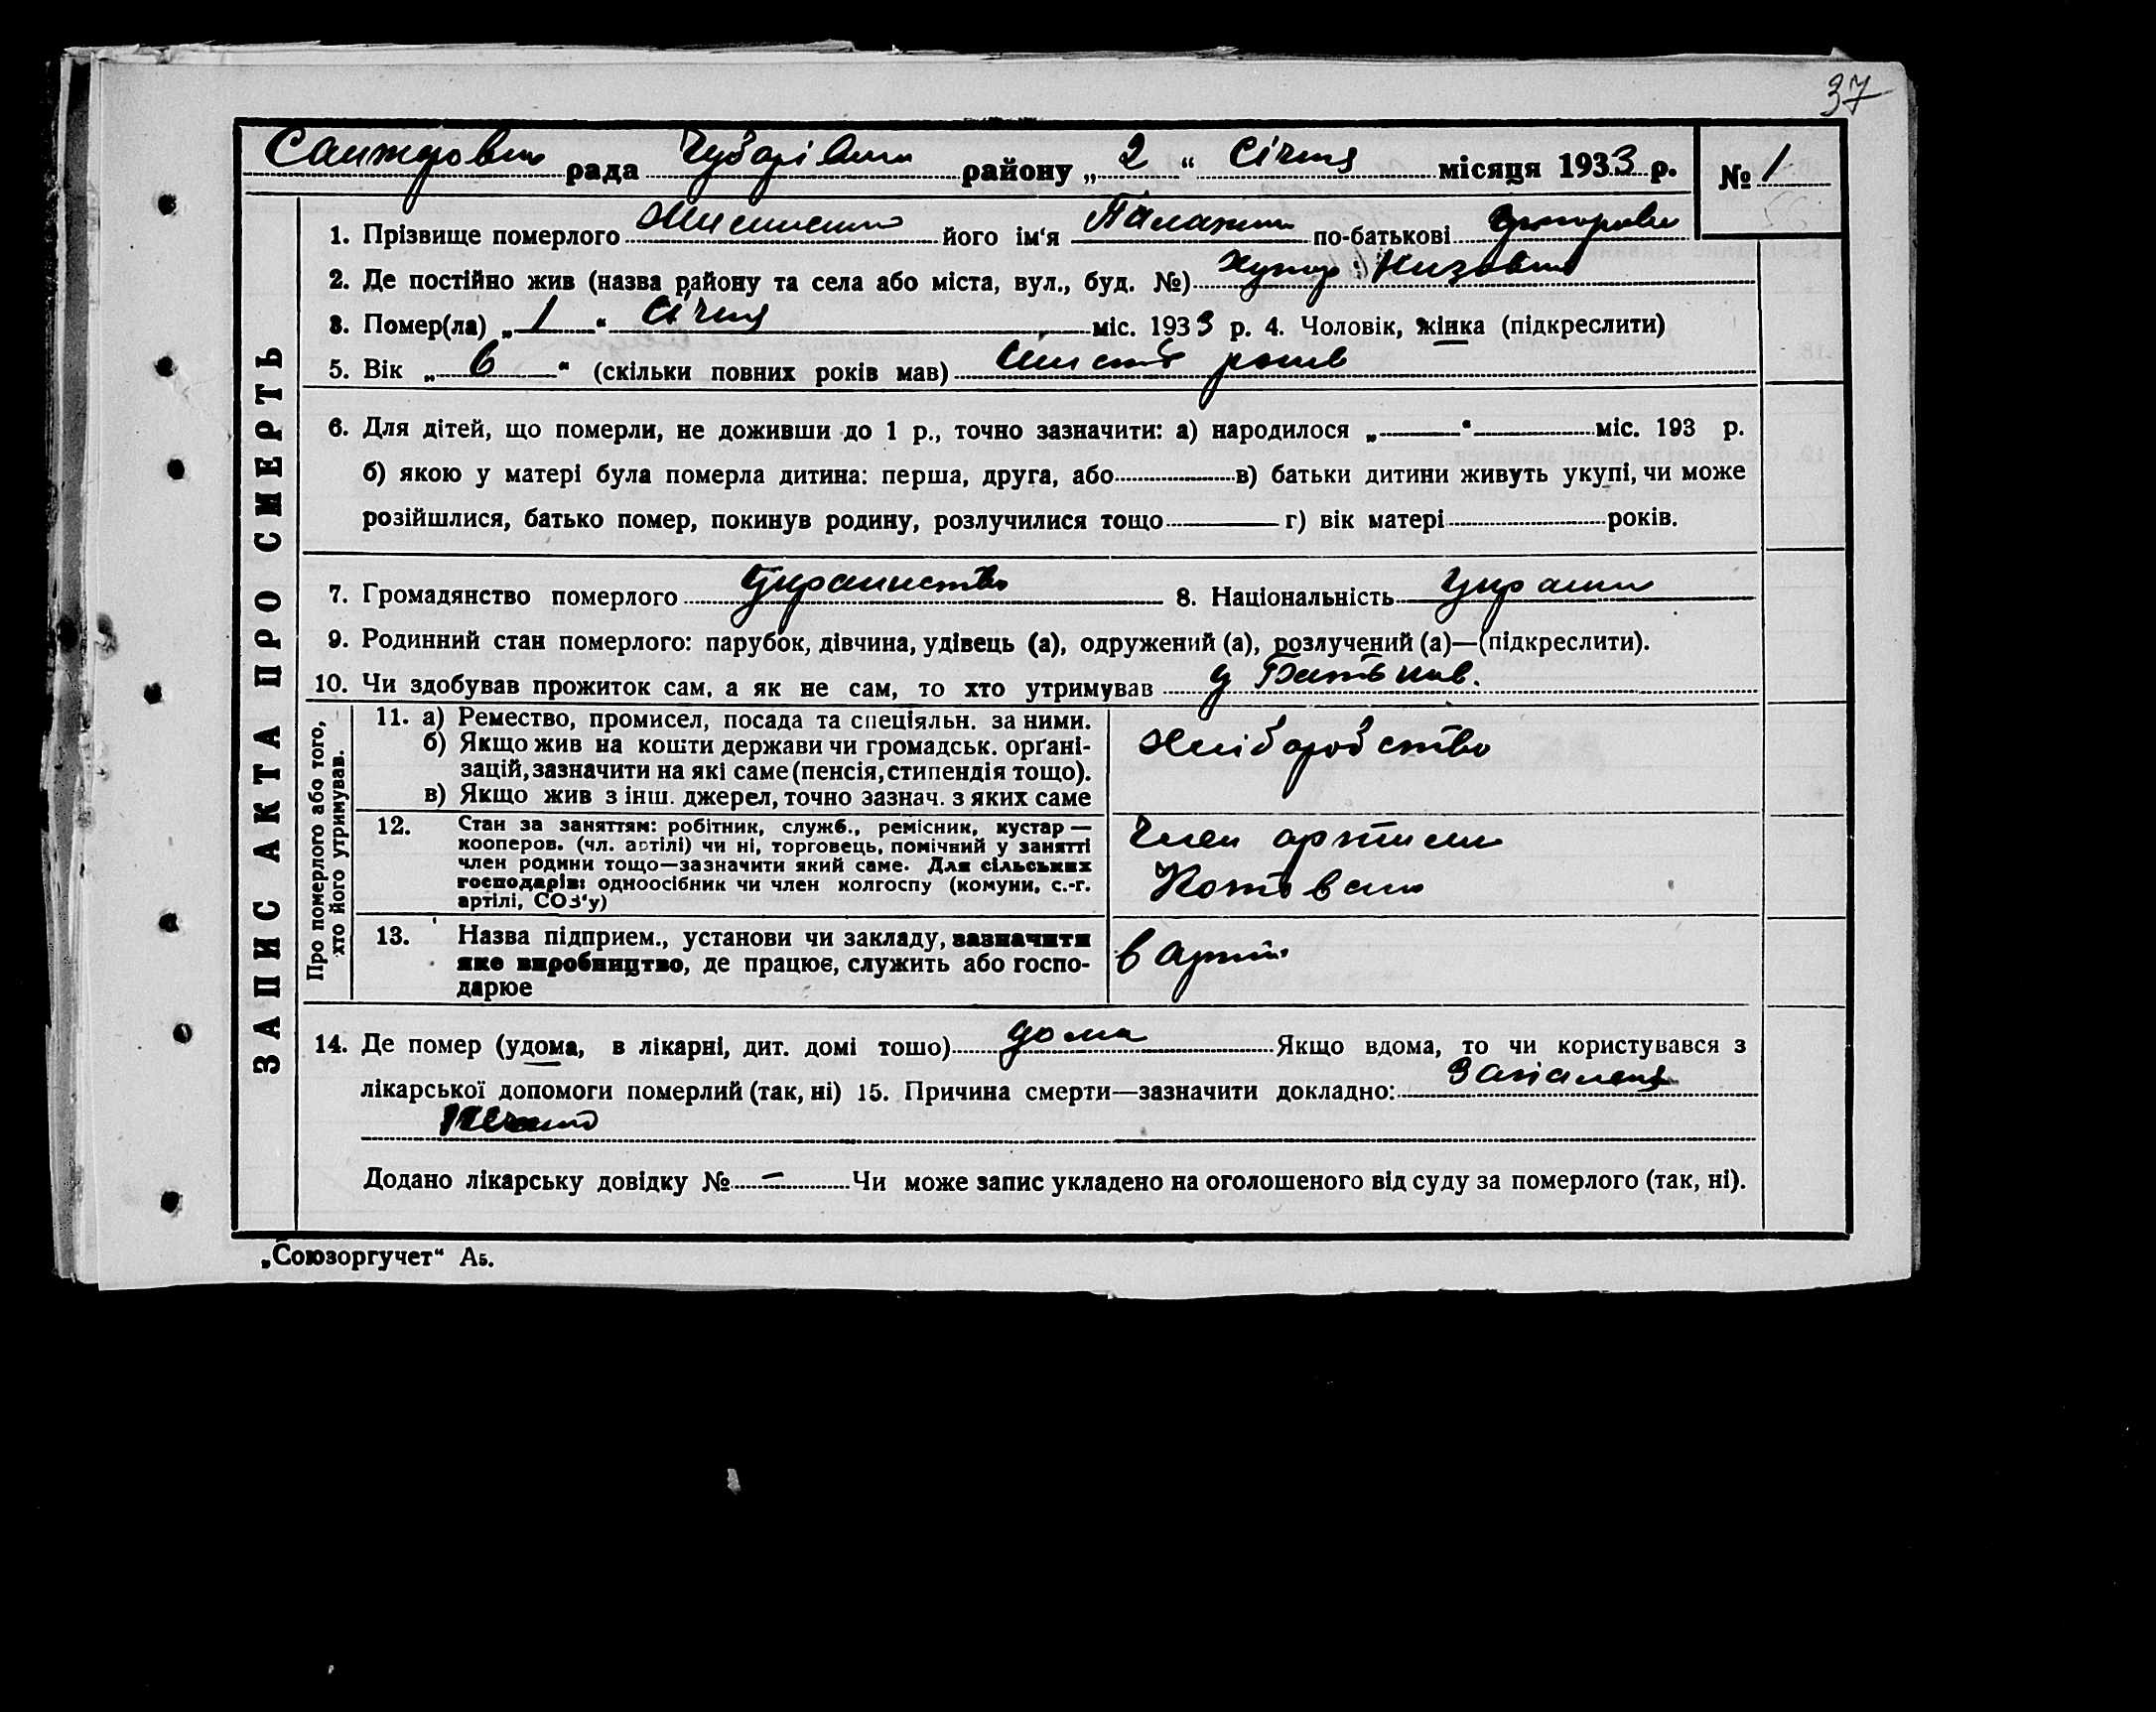 37
рада Чубарівськ району „ 2 “ Січня місяця 1933 р. № 1
ЗАПИС АКТА ПРО СМЕРТЬ
1. Прізвище померлого його ім'я по-батькові
2. Де постійно жив (назва району та села або міста, вул., буд. №) хутор
3. Помер(ла) „ 1 “ Січня міс. 1933 р. 4. Чоловік, жінка (підкреслити)
5. Вік „ 6 “ (скільки повних років мав) шість років
6. Для дітей, що померли, не доживши до 1 р., точно зазначити: а) народилося „ “ міс. 193 р.
б) якою у матері була померла дитина: перша, друга, або в) батьки дитини живуть укупі, чи може
розійшлися, батько помер, покинув родину, розлучилися тощо г) вік матері років.
7. Громадянство померлого 8. Національність
9. Родинний стан померлого: парубок, дівчина, удівець (а), одружений (а), розлучений (а)—(підкреслити).
10. Чи здобував прожиток сам, а як не сам, то хто утримував у батьків.
Про померлого або того,
хто його утримував.
11. а) Ремество, промисел, посада та спеціяльн. за ними.
б) Якщо жив на кошти держави чи громадськ. орґані-
зацій, зазначити на які саме (пенсія, стипендія тощо).
в) Якщо жив з інш. джерел, точно зазнач. з яких саме
хліборобство
12. Стан за заняттям: робітник, служб., ремісник, кустар—
кооперов. (чл. артілі) чи ні, торговець, помічний у занятті
член родини тощо—зазначити який саме. Для сільських
господарів: одноосібник чи член колгоспу (комуни, с.-г.
артілі, СОЗ'у)
Член артили
13. Назва підприєм., установи чи закладу, зазначити
яке виробництво, де працює, служить або госпо-
дарює
в
14. Де помер (удома, в лікарні, дит. домі тошо) дома Якщо вдома, то чи користувався з
лікарської допомоги померлий (так, ні) 15. Причина смерти—зазначити докладно:
Додано лікарську довідку № – Чи може запис укладено на оголошеного від суду за померлого (так, ні).
„Союзоргучет“ А5.